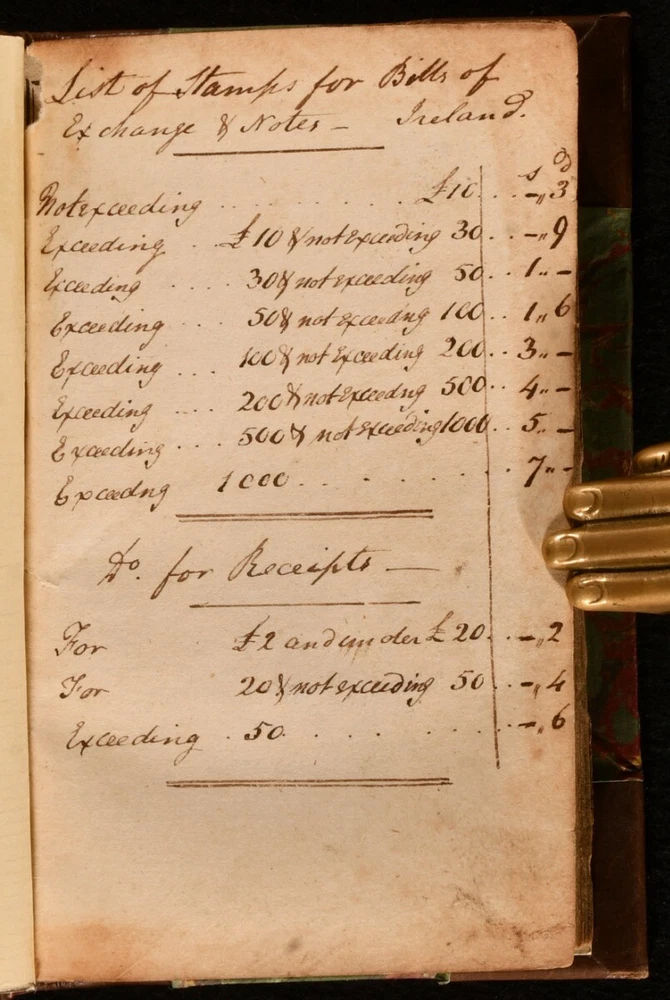 List of Stamps for Bills of
Exchange & Notes — Ireland.
s d
Not exceeding . . . . . . . . . £10 . . . -„3
Exceeding . . £10 & not Exceeding 30 . . -„9
Exceeding . . . . 30 & not exceeding 50 . . 1„-
Exceeding . . . 50 & not exceedng 100 . . 1„6
Exceeding . . . 100 & not Exceeding 200 . . 3„-
Exceeding . . . . 200 & not Exceedng 500 . . 4„-
Exceeding . . . 500 & not Exceeding 1000 . . 5„-
Exceedng 1000 . . . . . . . . . . 7„-
Do. for Receipts —
For £2 and under £20 . . -„2
For 20 & not exceeding 50 . . -„4
Exceeding . 50 . . . . . . . -„6